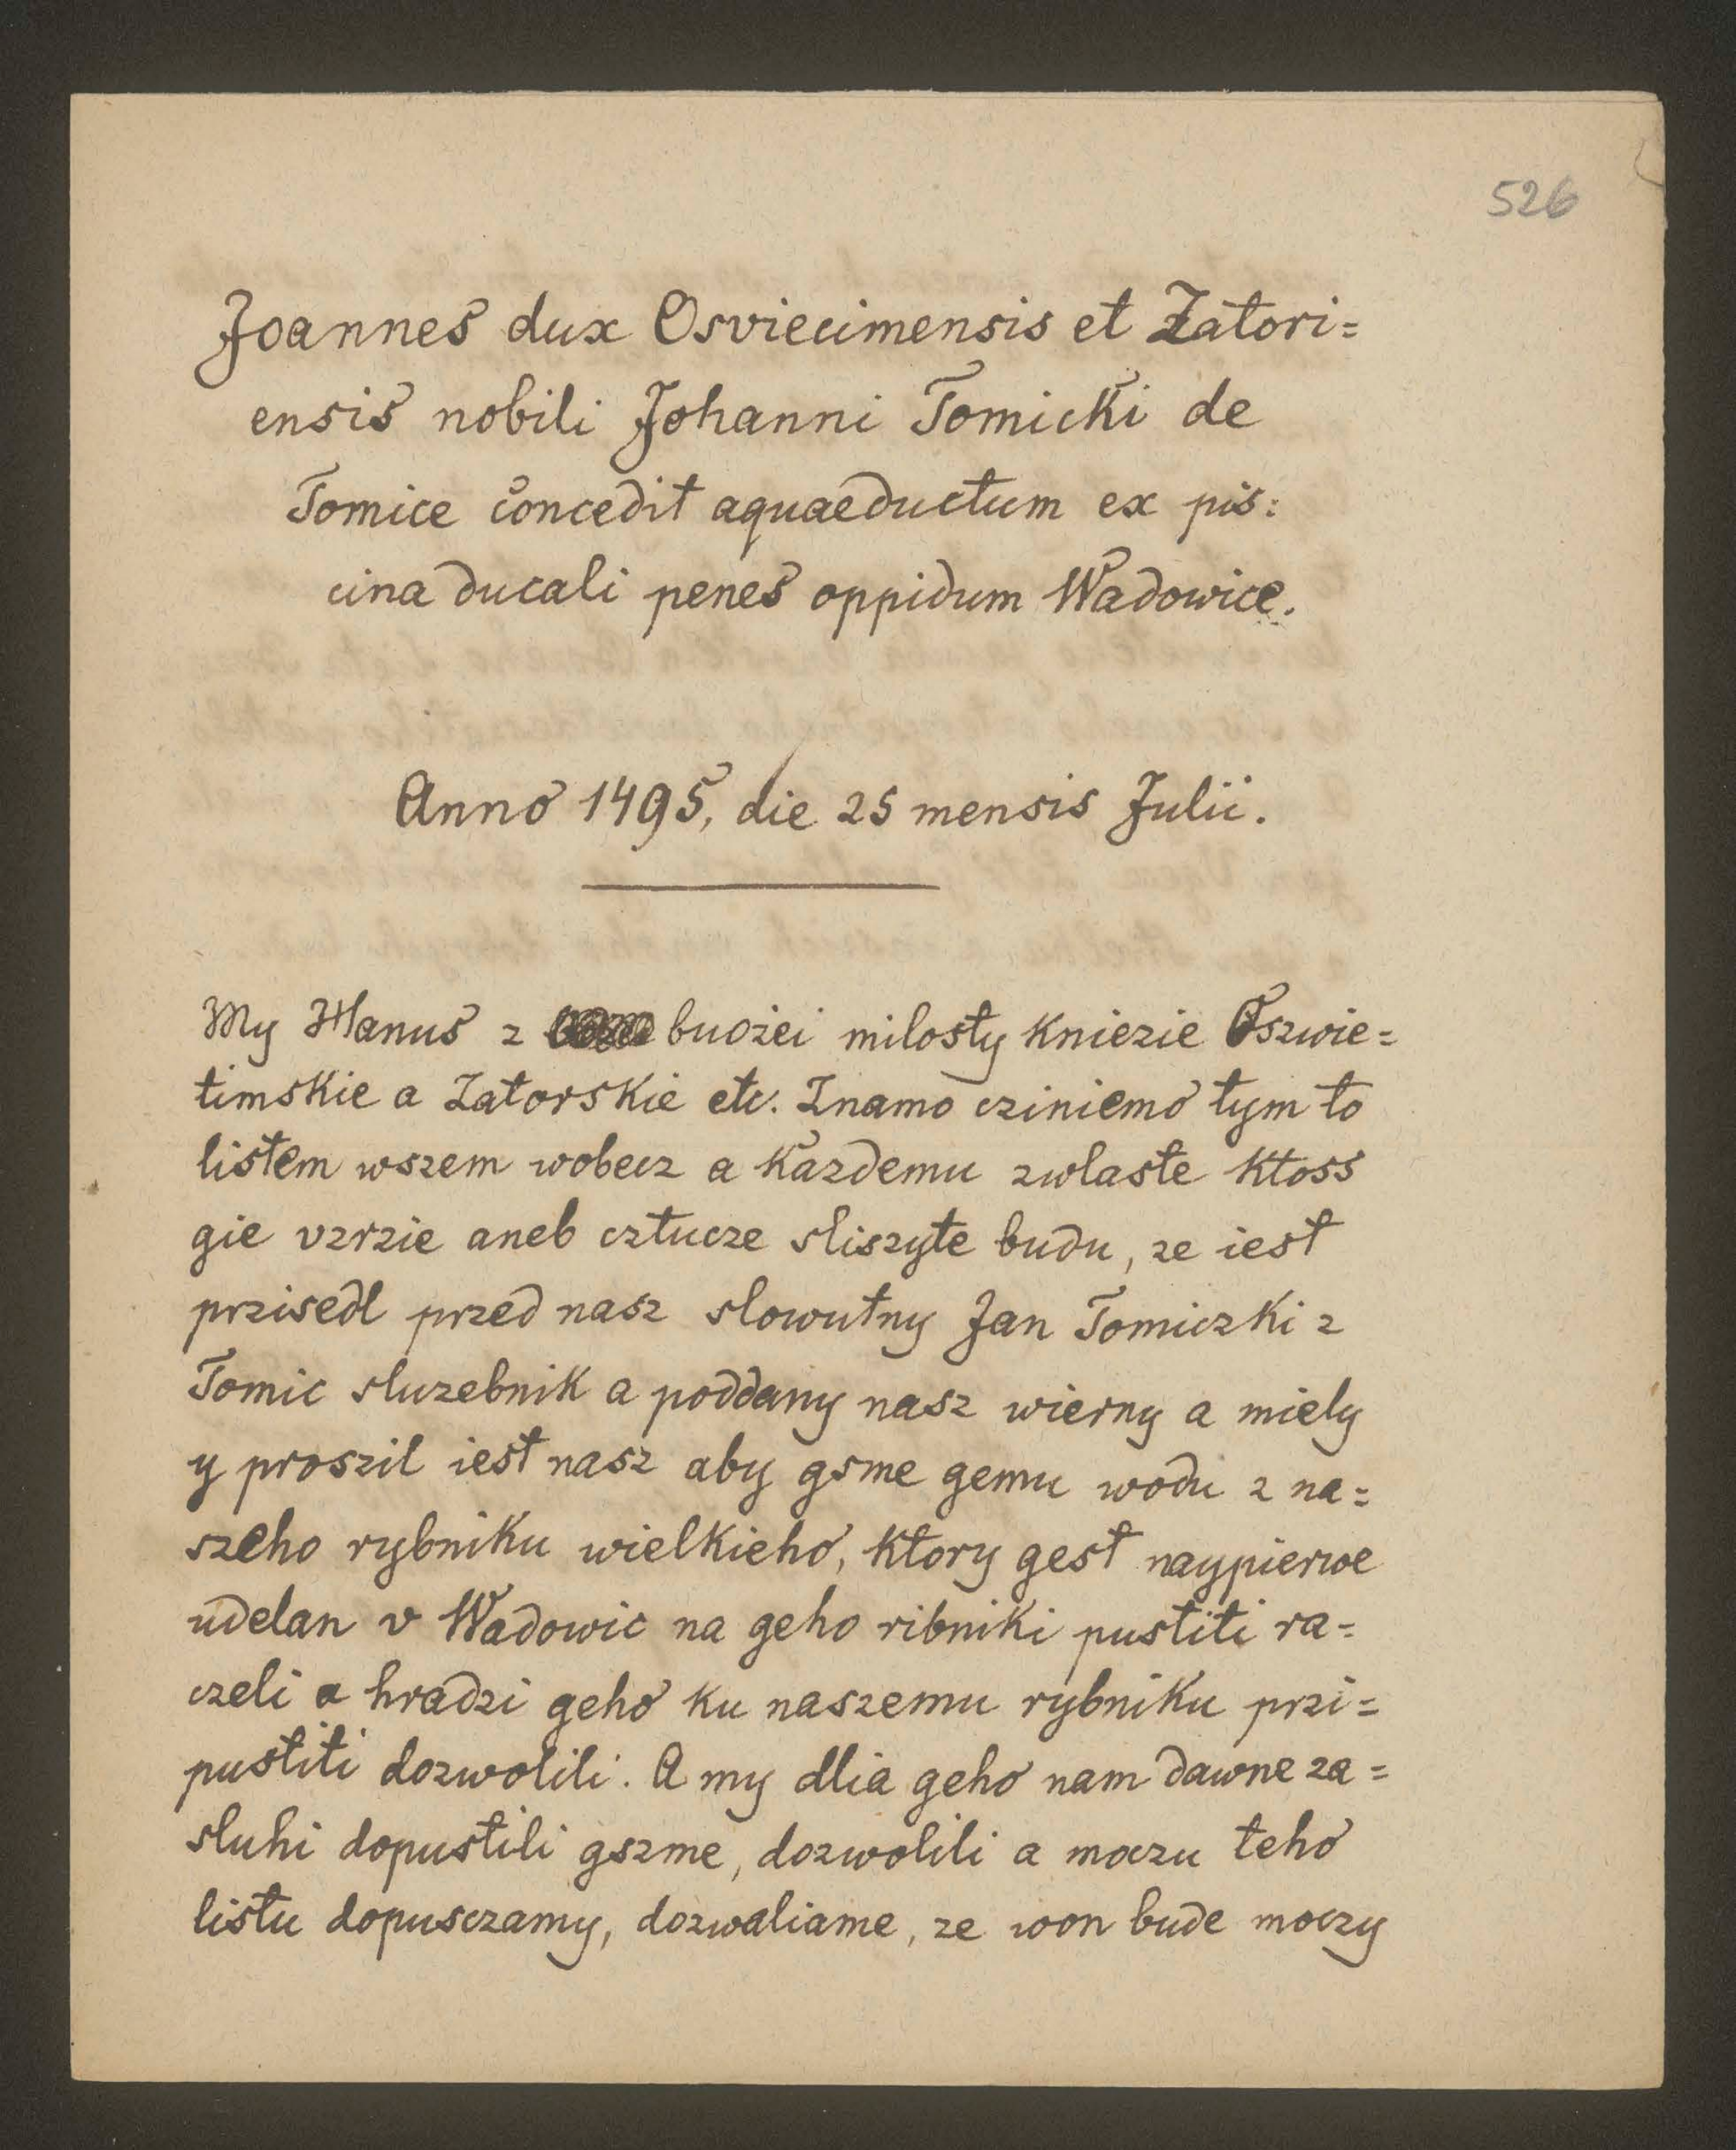 526
Joannes dux Osviecimensis et Zatori=
ensis nobili Johanni Tomicki de
Tomice concedit aquaeductum ex pis=
cina ducali penes oppidum Wadowice.
Anno 1495, die 25 mensis Julii.
My Hanus z buożei milosty kniezie Oszwie=
timskie a Zatorskie etc. Znamo cziniemo tym to
listem wszem wobecz a każdemu zwlaste ktoss
gie vzrzie aneb cztucze sliszyte budu, ze iest
przisedl przed nasz slowutny Jan Tomiczki z
Tomic sluzebnik a poddany nasz wierny a miely
y proszil iest nasz aby gsme gemu wodu z na=
szeho rybniku wielkieho, ktory gest naypierwe
udelan v Wadowic na geho ribniki pustiti ra=
czeli a hradzi geho ku naszemu rybniku przi=
pustiti dozwolili. A my dlia geho nam dawne za=
sluhi dopustili gszme, dozwolili a moczu teho
listu dopusczamy, dozwaliame, ze won bude moczy